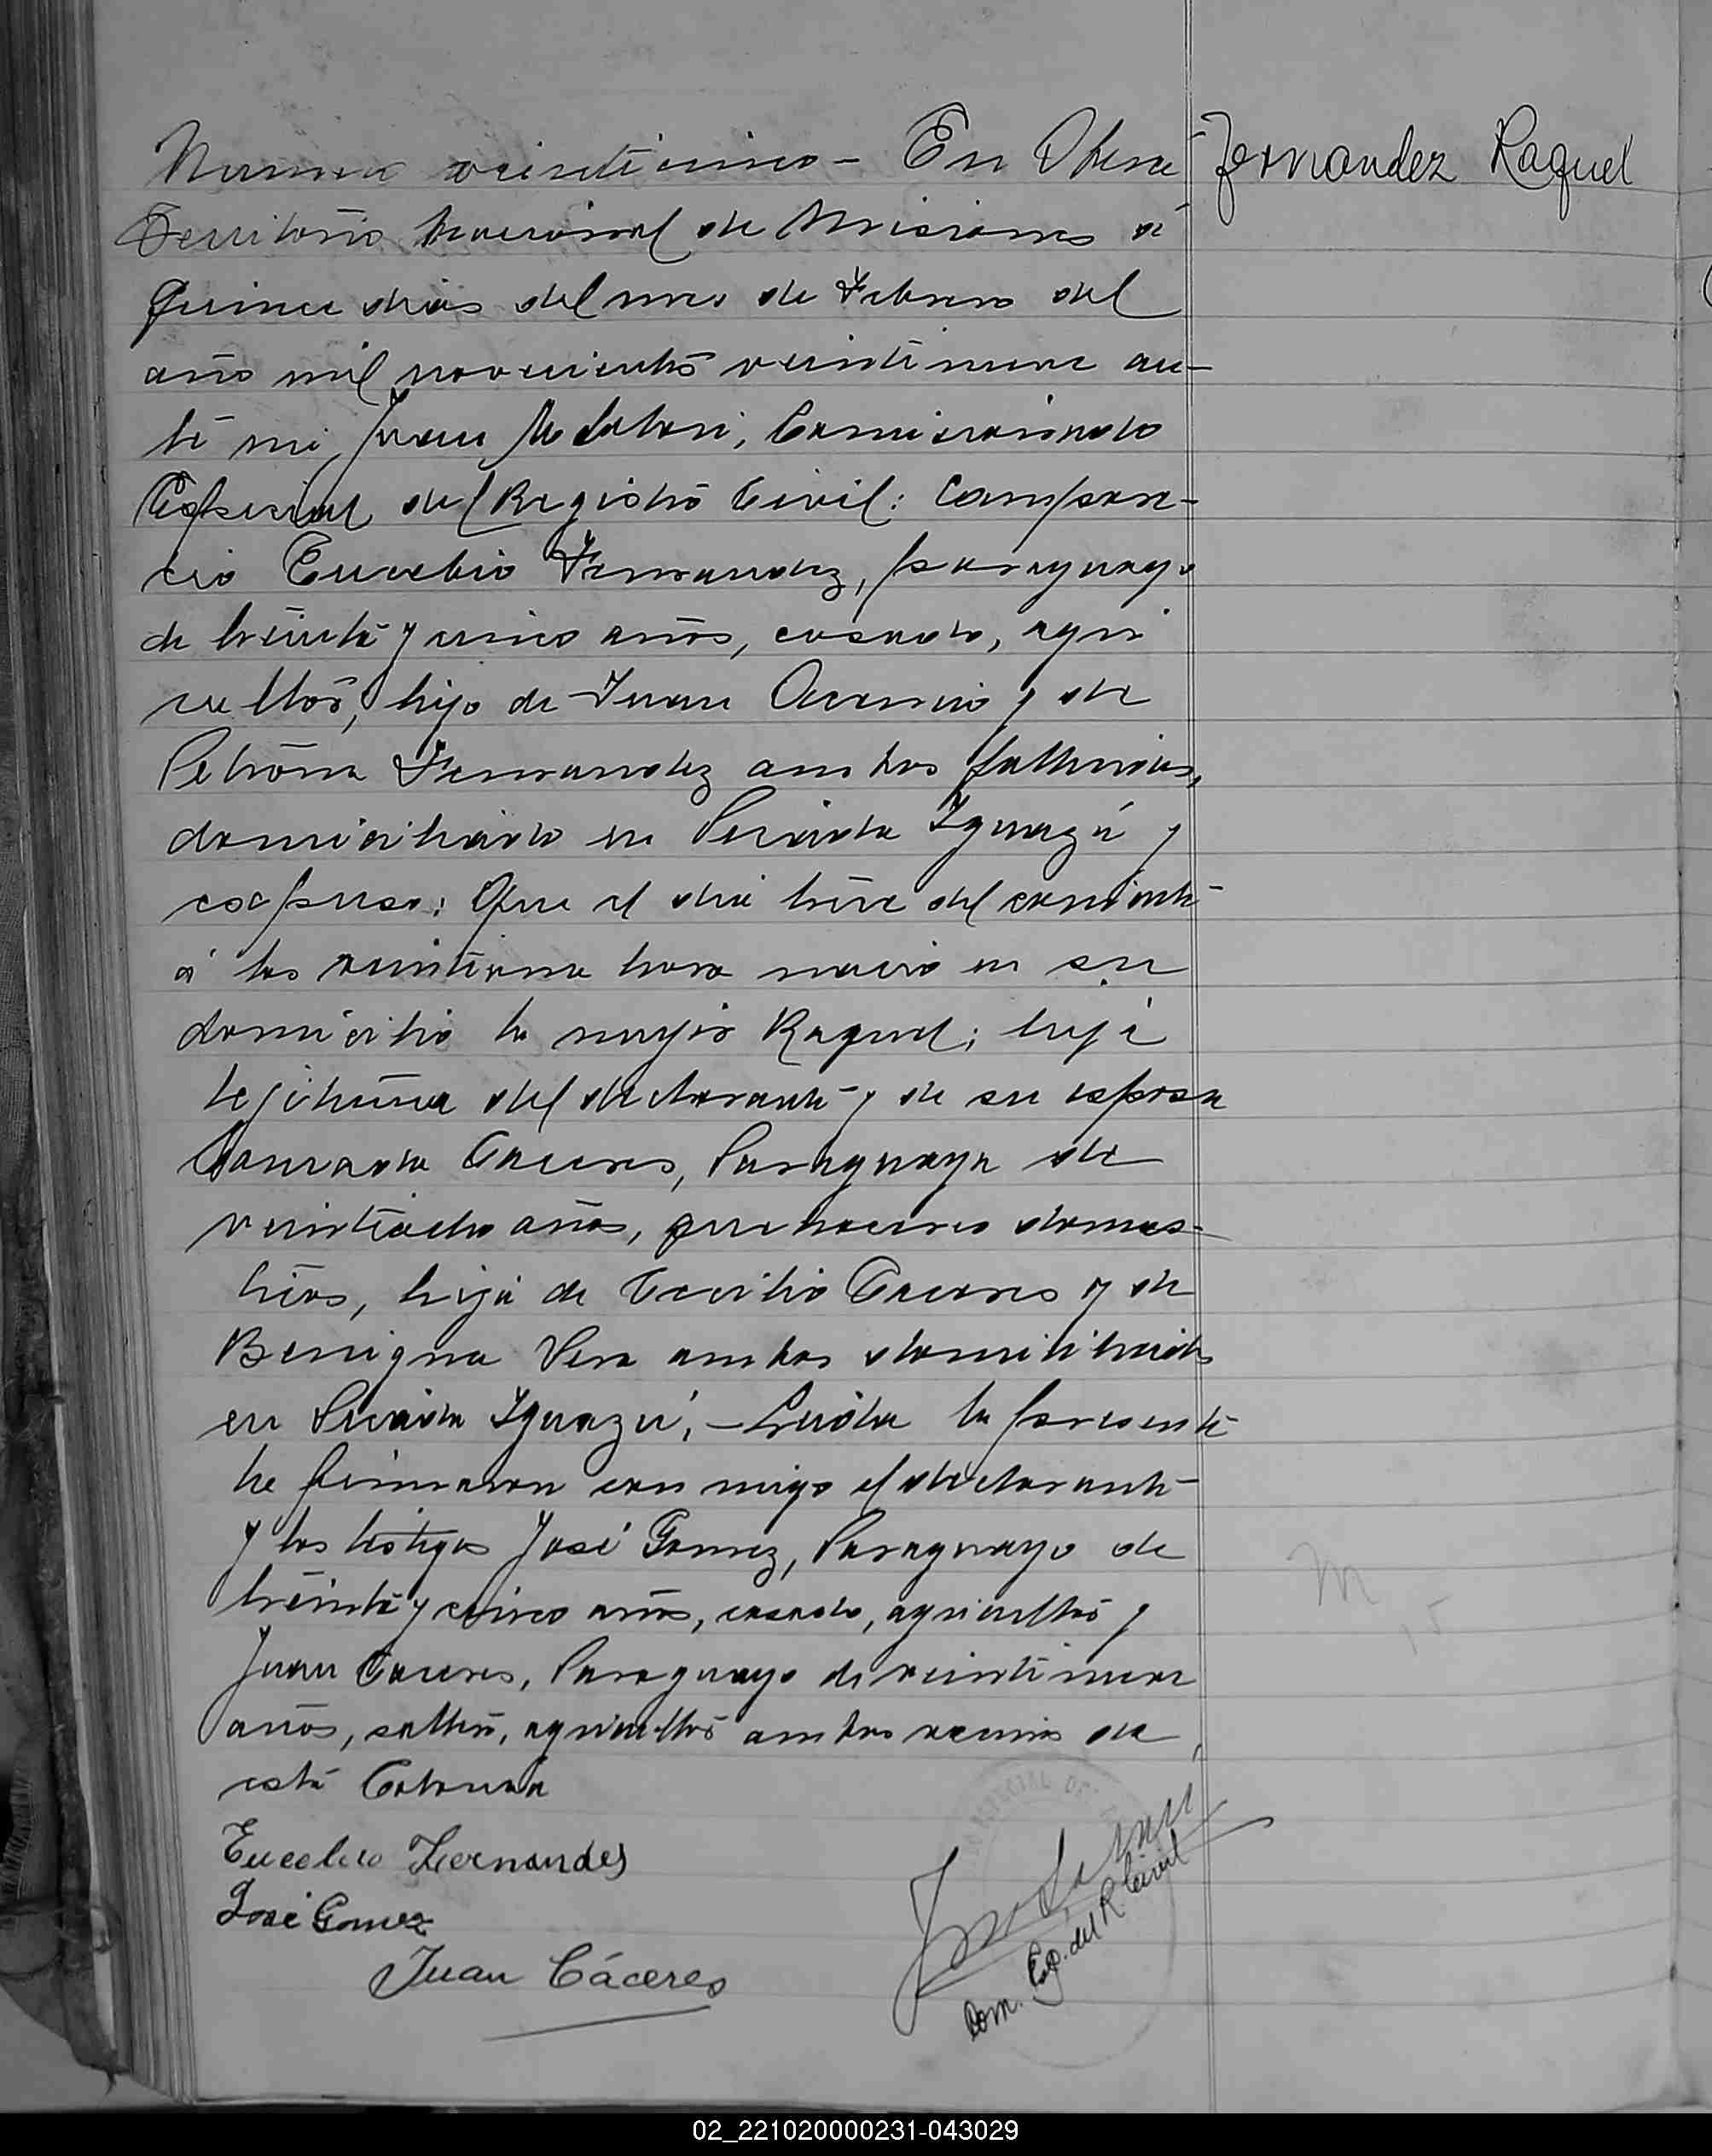 Numero veinticinco - En Obera
Fernandez Raquel
Territorio Nacional de Misiones á
quince dias del mes de Febrero del
año mil novecientos veintinueve an-
te mi, Juan M Comisionado
Especial del Registro Civil: Compare-
cio Eucebio Fernandez, paraguayo
de treinta y cinco años, casado, agri
cultor, hijo de Juan Ocampo y de
Petrona Fernandez ambos fallecidos,
domiciliado en Picada Iguazú y
expuso: Que el dia trece del corriente
á las veintiuna hora nacio en su
domicilio la mujer Raquel; hija
lejitima del declarante y de su esposa
Conrada Caceres, Paraguaya de
veintiocho años, quehaceres domes-
ticos, hija de Cecilio Caceres y de
Benigna Vera ambos domiciliados
en Picada Iguazú, - Leida la presente
la firmaron con migo el declarante
y los testigos José Gomez, Paraguayo de
treinta y cinco años, casado, agricultor y
Juan Caceres, Paraguayo de veintinueve
años, soltero, agricultor ambos vecinos de
esta Colonia
Eucebio Fernandes
José Gomez
Juan Cáceres
Com. Esp. del R. Civil
02_221020000231-043029